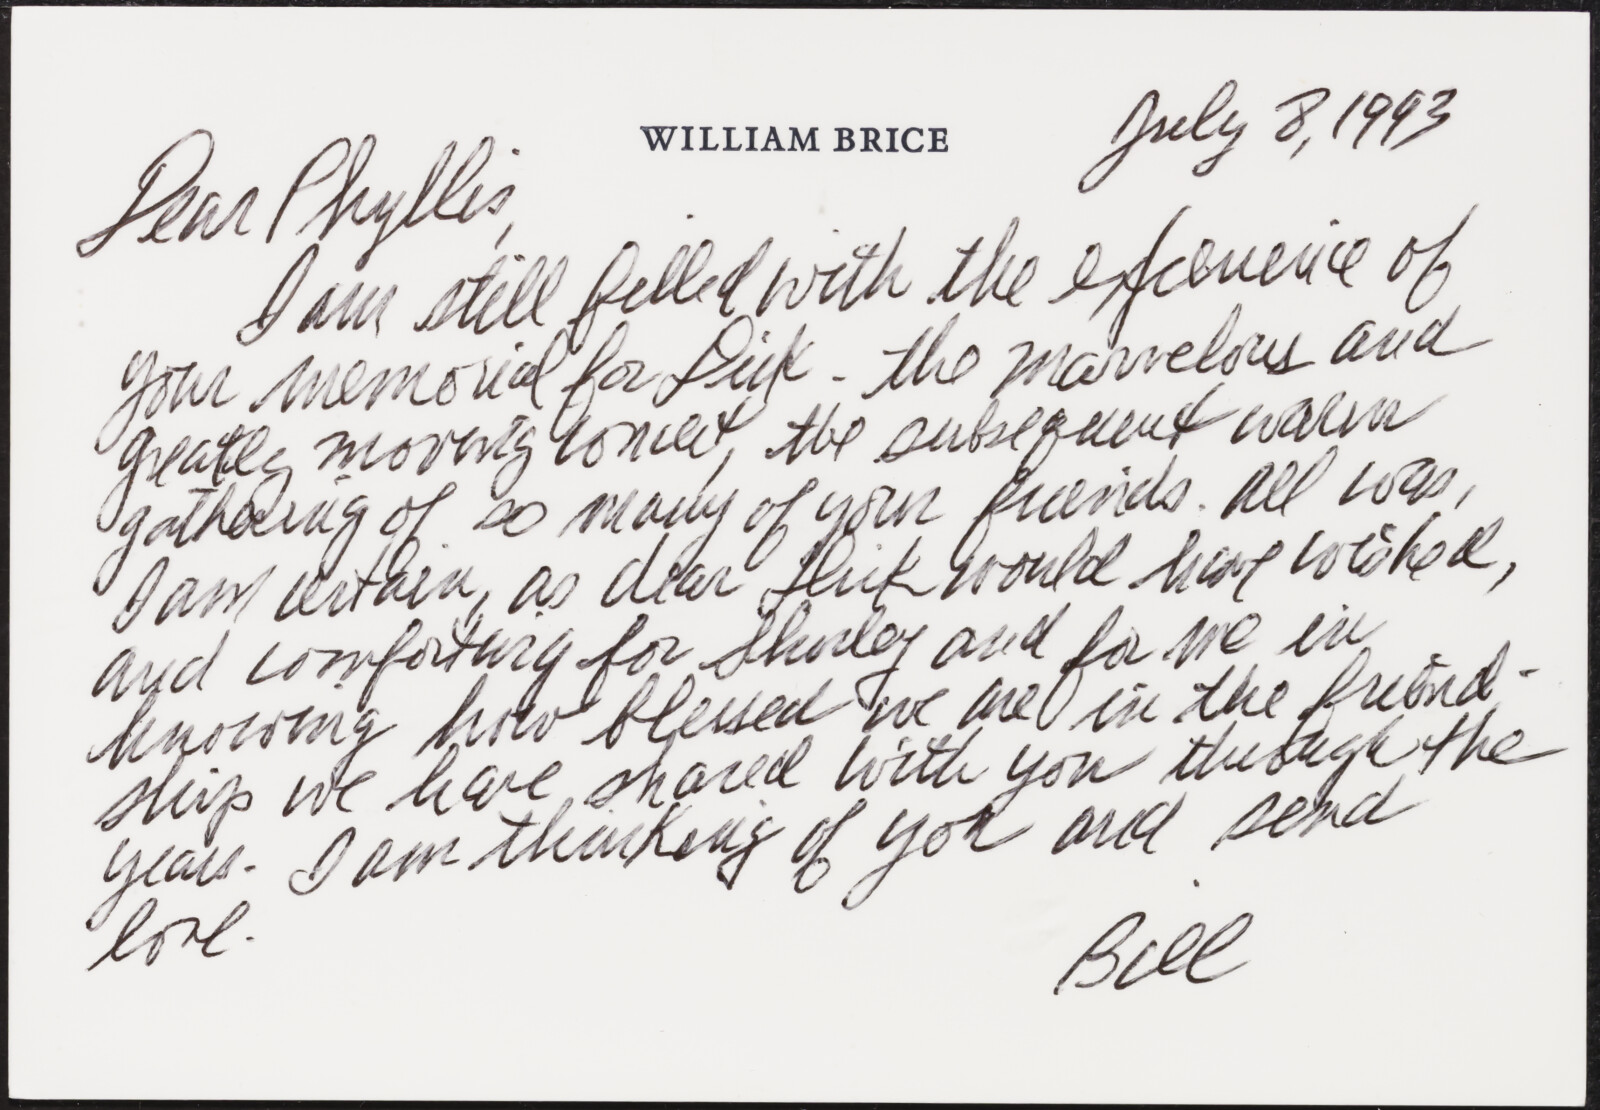 WILLIAM BRICE
July 8, 1993
Dear Phyllis,
I am still filled with the experience of
your memorial for Dick - the marvelous and
greatly moving concert, the subsequent warm
gathering of so many of your friends. All was,
I am certain, as dear Dick would have wished,
and comforting for Shirley and for me in
knowing how blessed we are in the friend-
ship we have shared with you through the
years. I am thinking of you and send
love.
Bill